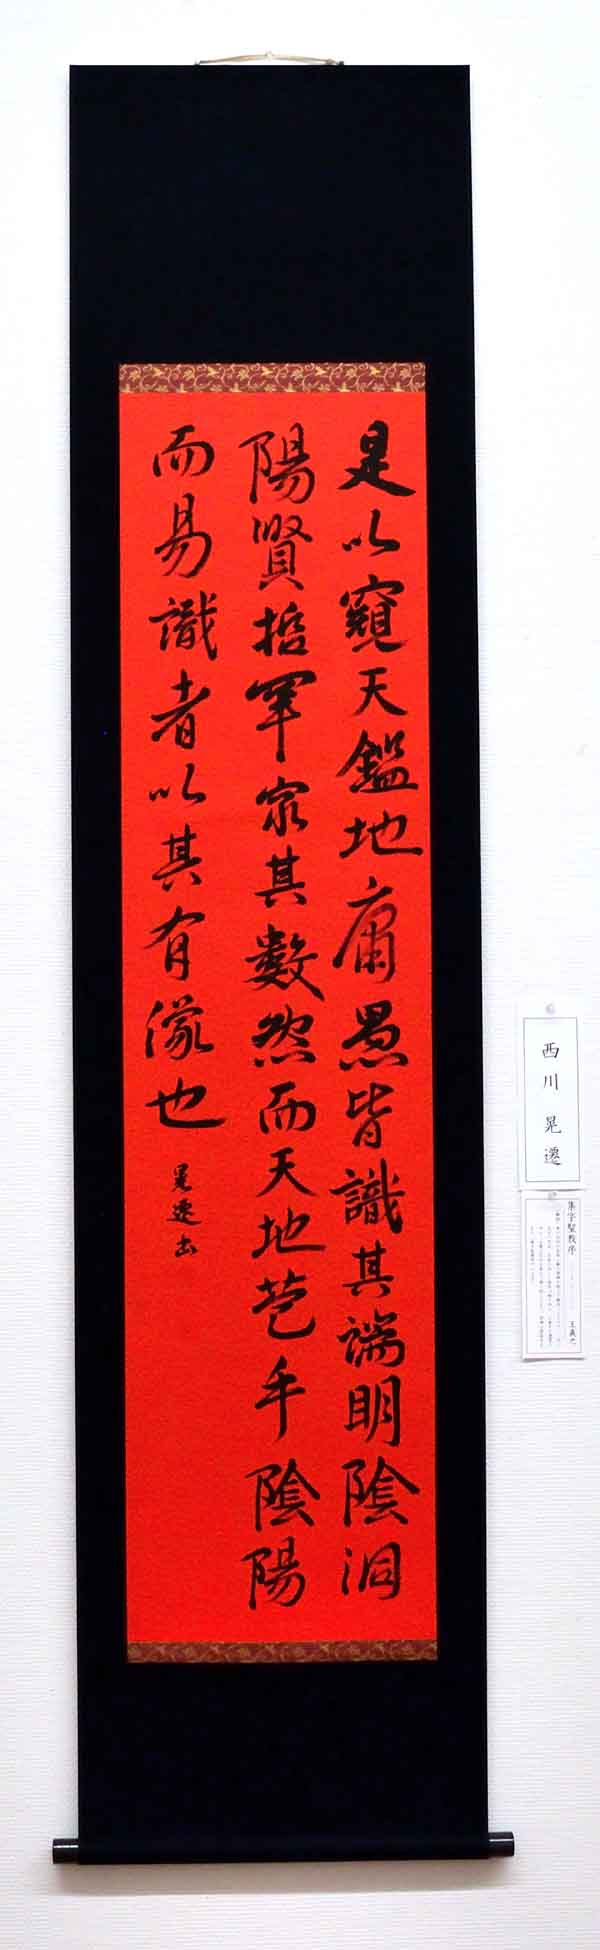 是以窺天鑑地庸愚皆識其端明陰洞
陽賢哲罕窮其數然而天地苞乎陰陽
而易識者以其有像也
晃遷書
西川 晃遷
集字聖教序
王羲之